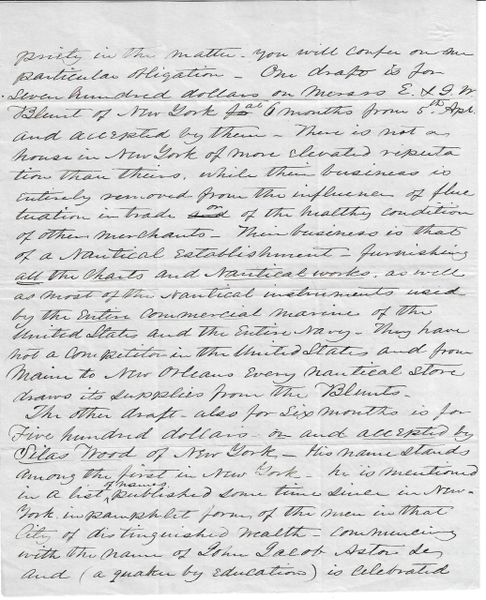 priety in the matter - you will confer on me
particular obligation - One draft is for
Seven hundred dollars on Messrs E. & G. W
Blunt of New York at 6 months from 5th Apl.
and accepted by them - There is not a
house in New York of more elevated reputa
tion than theirs, while their business is
entirely removed from the influence of fluc
tuation in trade or of the healthy condition
of other merchants - Their business is that
of a Nautical Establishment - furnishing
all the Charts and Nautical works, as well
as most of the Nautical instruments used
by the Entire Commercial marine of the
United States and the Entire Navy - They have
not a Competitor in the United States and from
Maine to New Orleans Every nautical store
draws its supplies from the Blunts -
The other draft - also for Six months is for
Five hundred dollars - on and accepted by
Silas Wood of New York - His name stands
among the first in New York - he is mentioned
in a list of names published some time since in New-
York in pamphlet form, of the men in that
City of distinguished wealth - commencing
with the name of John Jacob Astor
and (a quaker by education) is celebrated